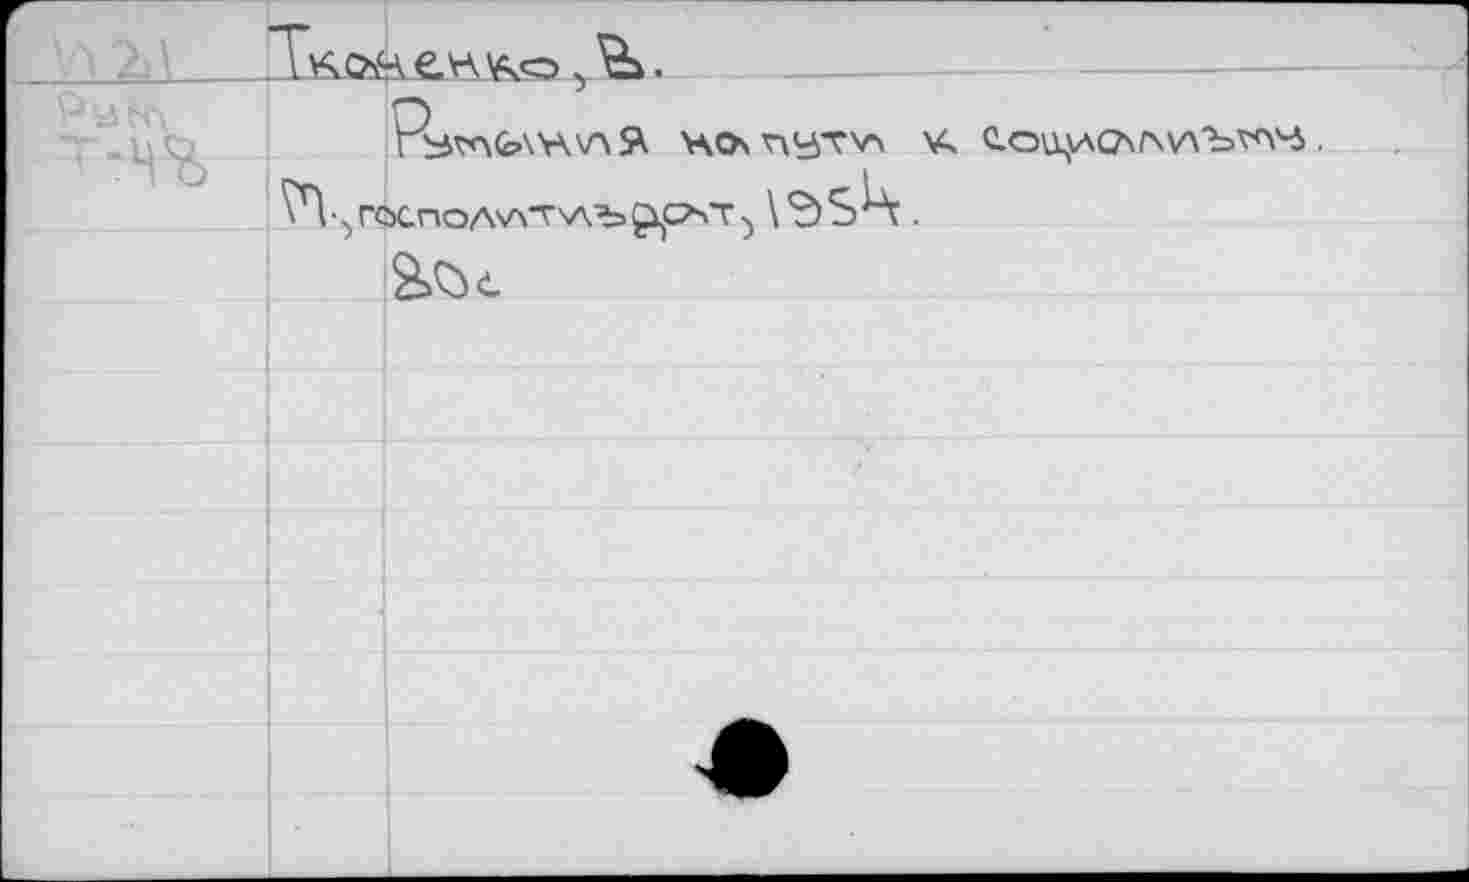 Ткаченко, В.
Рум
Т-48
Румыния на пути к социализму.
М., госполитиздат, 1954.
80с